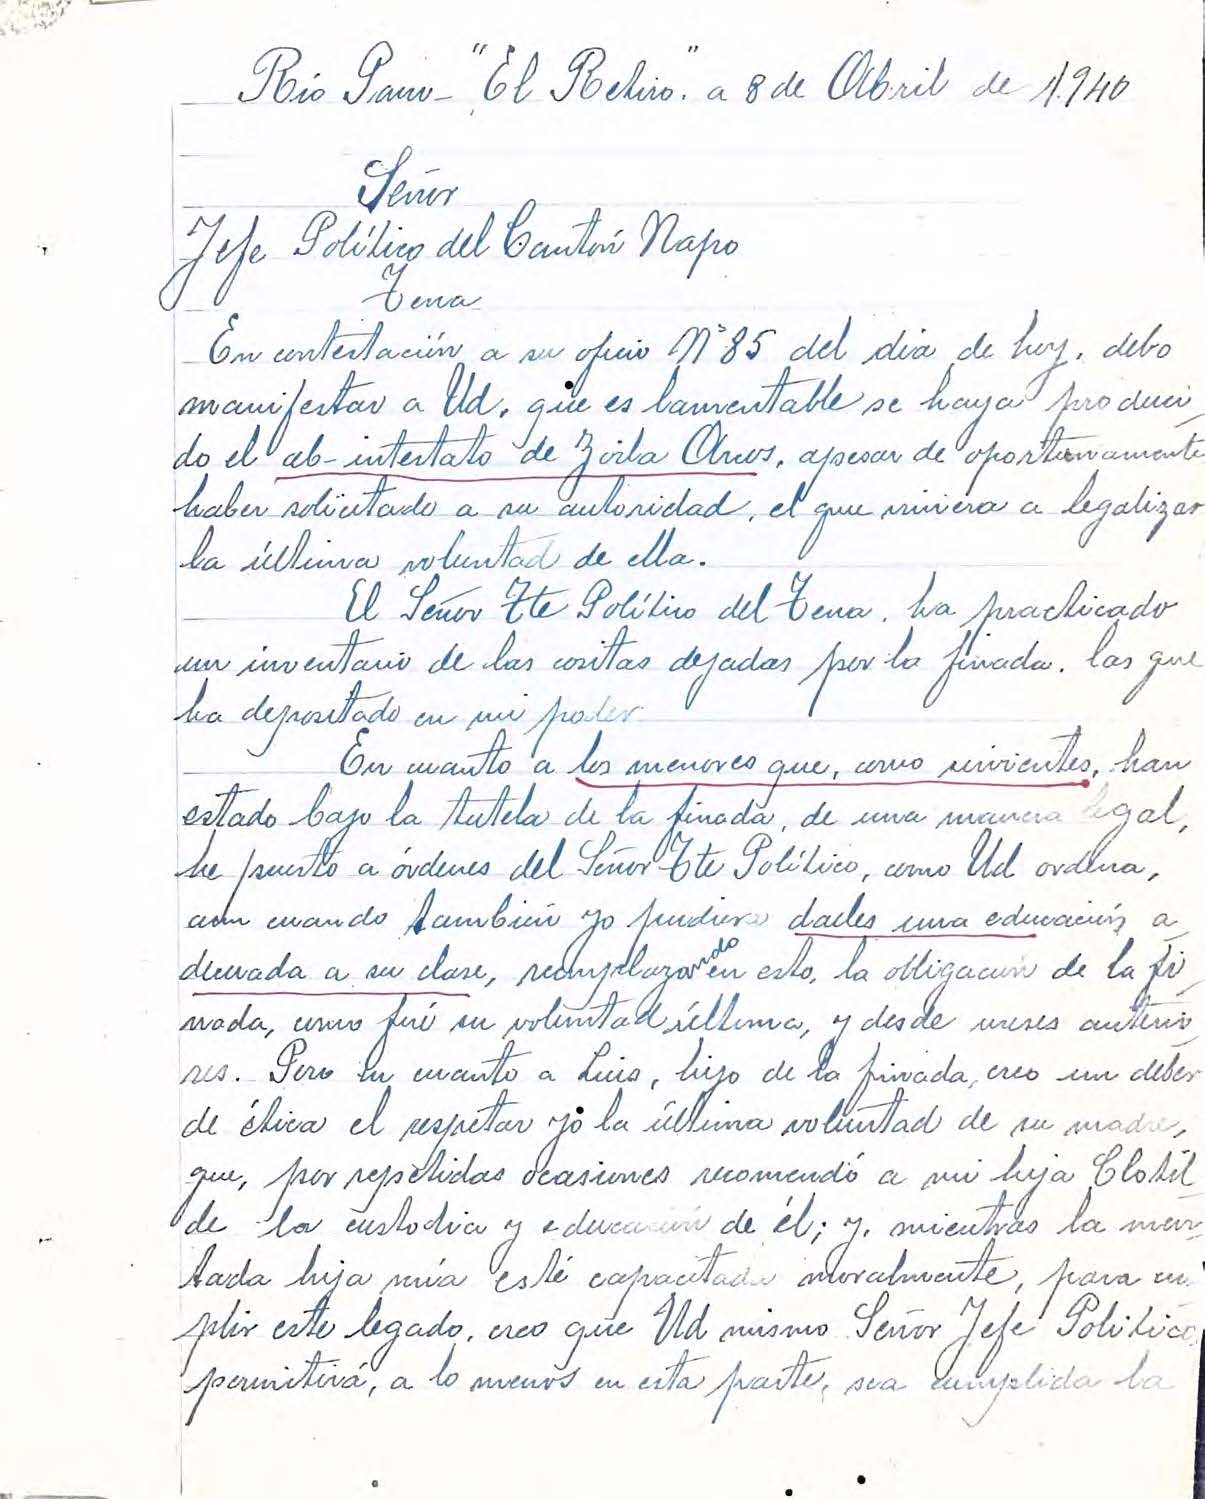 Río Pano - "El Retiro". a 8 de Abril de 1.940
Señor
Jefe Político del Cantón Napo
Tena
En contestación a su oficio Nº 85 del dia de hoy, debo
manifestar a Ud, que es lamentable se haya produci-
do el ab-intestato de Zoila Arcos, apesar de oportunamente
haber solicitado a su autoridad, el que viniera a legalizar
la última voluntad de ella.
El Señor Tte Político del Tena, ha practicado
un inventario de las cositas dejadas por la finada, las que
ha depositado en mi poder.
En cuanto a los menores que, como sirvientes, han
estado bajo la tutela de la finada, de una manera legal,
he puesto a órdenes del Señor Tte Político, como Ud ordena,
aun cuando también yo pudiera darles una educación a-
decuada a su clase, reemplazando en esto, la obligación de la fi-
nada, como fué su voluntad última, y desde meses anterio-
res. Pero en cuanto a Luis, hijo de la finada, creo un deber
de ética el respetar yo la última voluntad de su madre,
que, por repetidas ocasiones recomendó a mi hija Clotil-
de la custodia y educación de él; y, mientras la men-
tada hija mía esté capacitada moralmente, para cum-
plir este legado, creo que Ud mismo Señor Jefe Político,
permitirá, a lo menos en esta parte, sea cumplida la